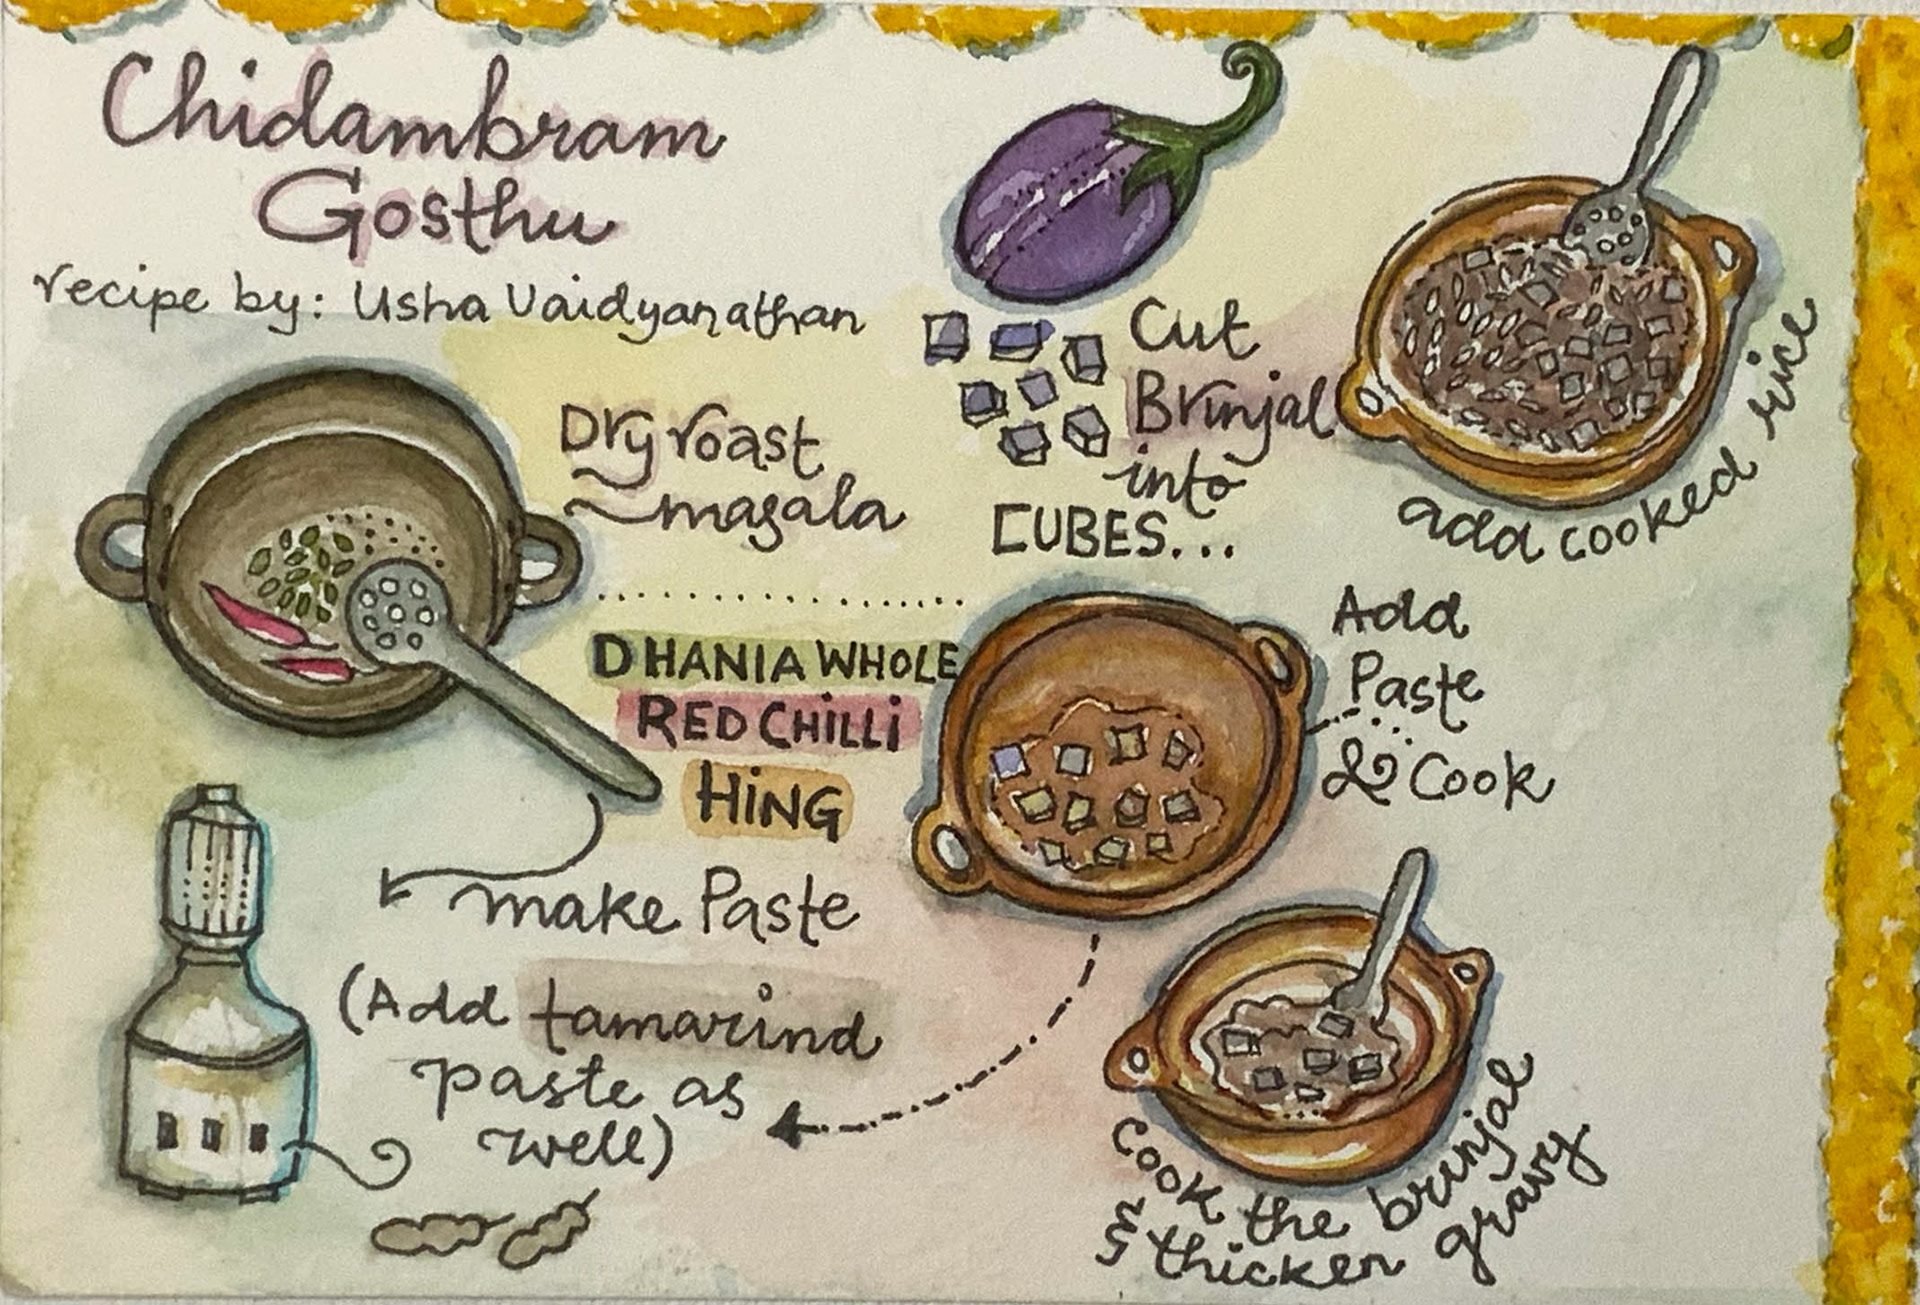 Chidambram
Gosthu
recipe by: Usha Vaidyanathan
Dry roast
masala
DHANIA WHOLE
RED CHILLI
HING
make Paste
(Add tamarind
paste as
well)
Cut
Brinjal
into
CUBES...
Add
Paste
& Cook
Cook the brinjal
& thicken gravy
add cooked rice